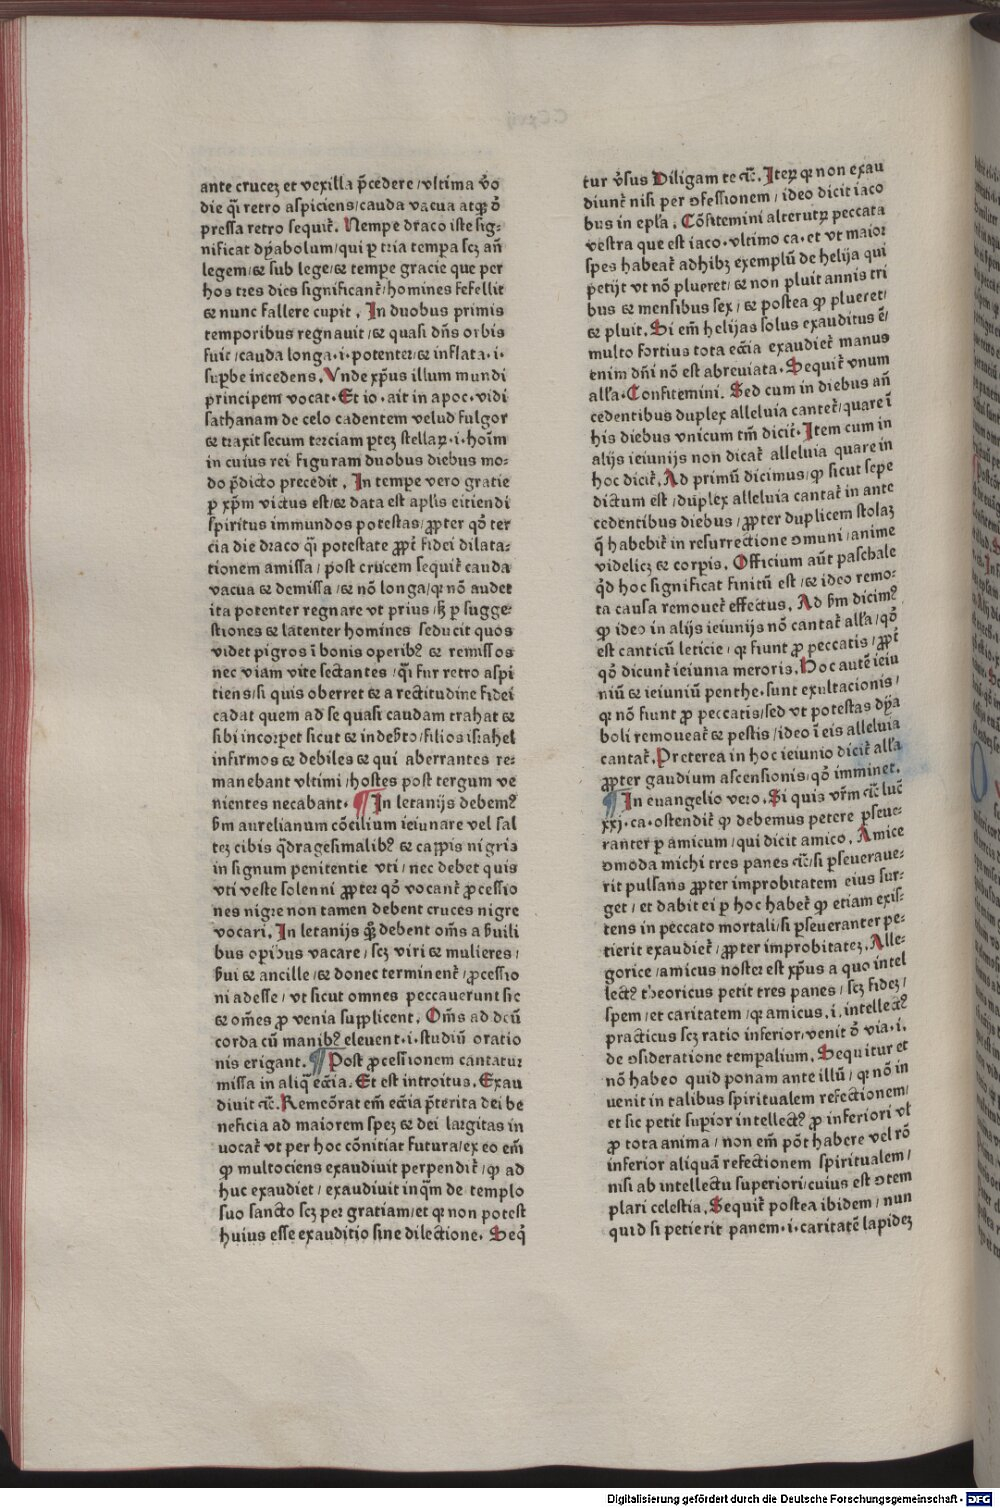 ante crucez et vexilla p̄cedere / vltima v̉o
die q̄i retro aspiciens / cauda vacua atqꝫ ꝺ̉
pressa retro sequit᷑. Nempe draco iste sig⸗
nificat dyabolum / qui ꝑ tria tempa scꝫ an̄
legem / ⁊ sub lege / ⁊ tempe gracie que per
hos tres dies significant᷑ / homines fefellit
⁊ nunc fallere cupit. In duobus primis
temporibus regnauit / ⁊ quasi dn̄s orbis
fuit / cauda longa·i·potenter / ⁊ inflata·i·
suꝑbe incedens. Vnde xp̄us illum mundi
principem vocat. Et io. ait in apoc. vidi
sathanam de celo cadentem velud fulgor
⁊ traxit secum terciam ꝑteꝫ stellaꝝ·i·hoīm
in cuius rei figuram duobus diebus mo⸗
do p̄dicto precedit. In tempe vero gratie
ꝑ xp̄m victus est / ⁊ data est aplis eitiendi
spiritus immundos potestas / ꝓpter qꝺ̉ ter
cia die draco q̄i potestate ꝓpt᷑ fidei dilata⸗
tionem amissa / post crucem sequit᷑ cauda
vacua ⁊ demissa / ⁊ nō longa / qꝛ nō audet
ita potenter regnare vt prius / sꝫ ꝑ sugge⸗
stiones ⁊ latenter homines seducit quos
videt pigros ī bonis operibꝰ ⁊ remissos
nec viam vite sectantes / q̄i fur retro aspi
tiens / si quis oberret ⁊ a rectitudine fidei
cadat quem ad se quasi caudam trahat ⁊
sibi incorpet sicut ⁊ in deb̉to / filios israhel
infirmos ⁊ debiles ⁊ qui aberrantes re⸗
manebant vltimi / hostes post tergum ve
nientes necabant. ¶ In letanijs debemꝰ
ẜm aurelianum cōcilium ieiunare vel sal
teꝫ cibis q̄dragesimalibꝰ ⁊ cappis nigris
in signum penitentie vti / nec debet quis
vti veste solenni ꝓpter qꝺ̉ vocant᷑ ꝓcessio
nes nigre non tamen debent cruces nigre
vocari. In letanijs qͥꝫ debent om̄s a ẜuili
bus opibus vacare / scꝫ viri ⁊ mulieres /
ẜui ⁊ ancille / ⁊ donec terminent᷑ / ꝓcessio
ni adesse / vt sicut omnes peccauerunt sic
⁊ om̄es ꝓ venia supplicent. Om̄s ad deū
corda cū manibꝰ eleuent·i·studiū oratio
nis erigant. ¶ Post ꝓcessionem cantatur
missa in aliq̄ ecc̄ia. Et est introitus. Exau
diuit ⁊c̄. Remeōrat em̄ ecc̄ia p̄terita dei be
neficia ad maiorem speꝫ ⁊ dei largitas in
uocat᷑ vt per hoc cōnitiat futura / ex eo em̄
ꝙ multociens exaudiuit perpendit᷑ / ꝙ ad
huc exaudiet / exaudiuit inq̄m de templo
suo sancto scꝫ per gratiam / et qꝛ non potest
huius esse exauditio sine dilectione. Seq̉
tur v̉sus Diligam te ⁊c̄. Iteꝝ qꝛ non exau
diunt᷑ nisi per ꝯfessionem / ideo dicit iaco
bus in epl̄a. Cōfitemini alterutꝝ peccata
vestra que est iaco·vltimo ca. et vt maior
spes habeat᷑ adhibꝫ exemplū de helija qui
petijt vt nō plueret / ⁊ non pluit annis tri
bus ⁊ mensibus sex / ⁊ postea ꝙ plueret /
⁊ pluit. Si em̄ helijas solus exauditus ē /
multo fortius tota ecc̄ia exaudiet᷑ manus
enim dn̄i nō est abreuiata. Sequit᷑ vnum
all̄a. Confitemini. Sed cum in diebus an̄
cedentibus duplex alleluia cantet᷑ / quare ī
his diebus vnicum tm̄ dicit᷑. Item cum in
alijs ieiunijs non dicat᷑ alleluia quare in
hoc dicit᷑. Ad primū dicimus / ꝙ sicut sepe
dictum est / duplex alleluia cantat᷑ in ante
cedentibus diebus / ꝓpter duplicem stolaꝫ
q̄ habebit᷑ in resurrectione ꝯmuni / anime
videlicꝫ ⁊ corpis. Officium aūt paschale
qꝺ̉ hoc significat finitū est / ⁊ ideo remo⸗
ta causa remouet᷑ effectus. Ad ẜm dicimꝰ
ꝙ ideo in alijs ieiunijs nō cantat᷑ all̄a / qꝺ̉
est canticū leticie / qꝛ fiunt ꝓ peccatis / ꝓpt᷑
qꝺ̉ dicunt᷑ ieiunia meroris. Hoc autē ieiu
niū ⁊ ieiuniū penthe. sunt exultacionis /
qꝛ nō fiunt ꝓ peccatis / sed vt potestas dya
boli remoueat᷑ ⁊ pestis / ideo ī eis alleluia
cantat᷑. Preterea in hoc ieiunio dicit᷑ all̄a
ꝓpter gaudium ascensionis / qꝺ̉ imminet.
¶ In euangelio vero. Si quis vr̄m ⁊c̄ luc̄
xxj·ca·ostendit᷑ ꝙ debemus petere ꝑseue⸗
ranter ꝑ amicum / qui dicit amico. Amice
ꝯmoda michi tres panes ⁊c̄ / si ꝑseueraue⸗
rit pulsans ꝓpter improbitatem eius sur⸗
get / et dabit ei ꝑ hoc habet᷑ ꝙ etiam exis⸗
tens in peccato mortali / si ꝑseueranter pe⸗
tierit exaudiet᷑ / ꝓpter improbitateꝫ. Alle⸗
gorice / amicus noster est xp̄us a quo intel
lectꝰ theoricus petit tres panes / scꝫ fideꝫ /
spem / et caritatem / qꝛ amicus. i. intellectꝰ
practicus scꝫ ratio inferior / venit ꝺ̉ via. i.
de ꝯsideratione tempalium. Sequitur et
nō habeo quid ponam ante illū / qꝛ nō in
uenit in talibus spiritualem refectionem /
et sic petit supior intellectꝰ ꝓ inferiori vl̓
ꝓ tota anima / non em̄ pōt habere vel rō
inferior aliquā refectionem spiritualem /
nisi ab intellectu superiori / cuius est ꝯtem
plari celestia. Sequit᷑ postea ibidem / nun
quid si petierit panem·i·caritatē lapideꝫ
Digitalisierung gefördert durch die Deutsche Forschungsgemeinschaft - DFG